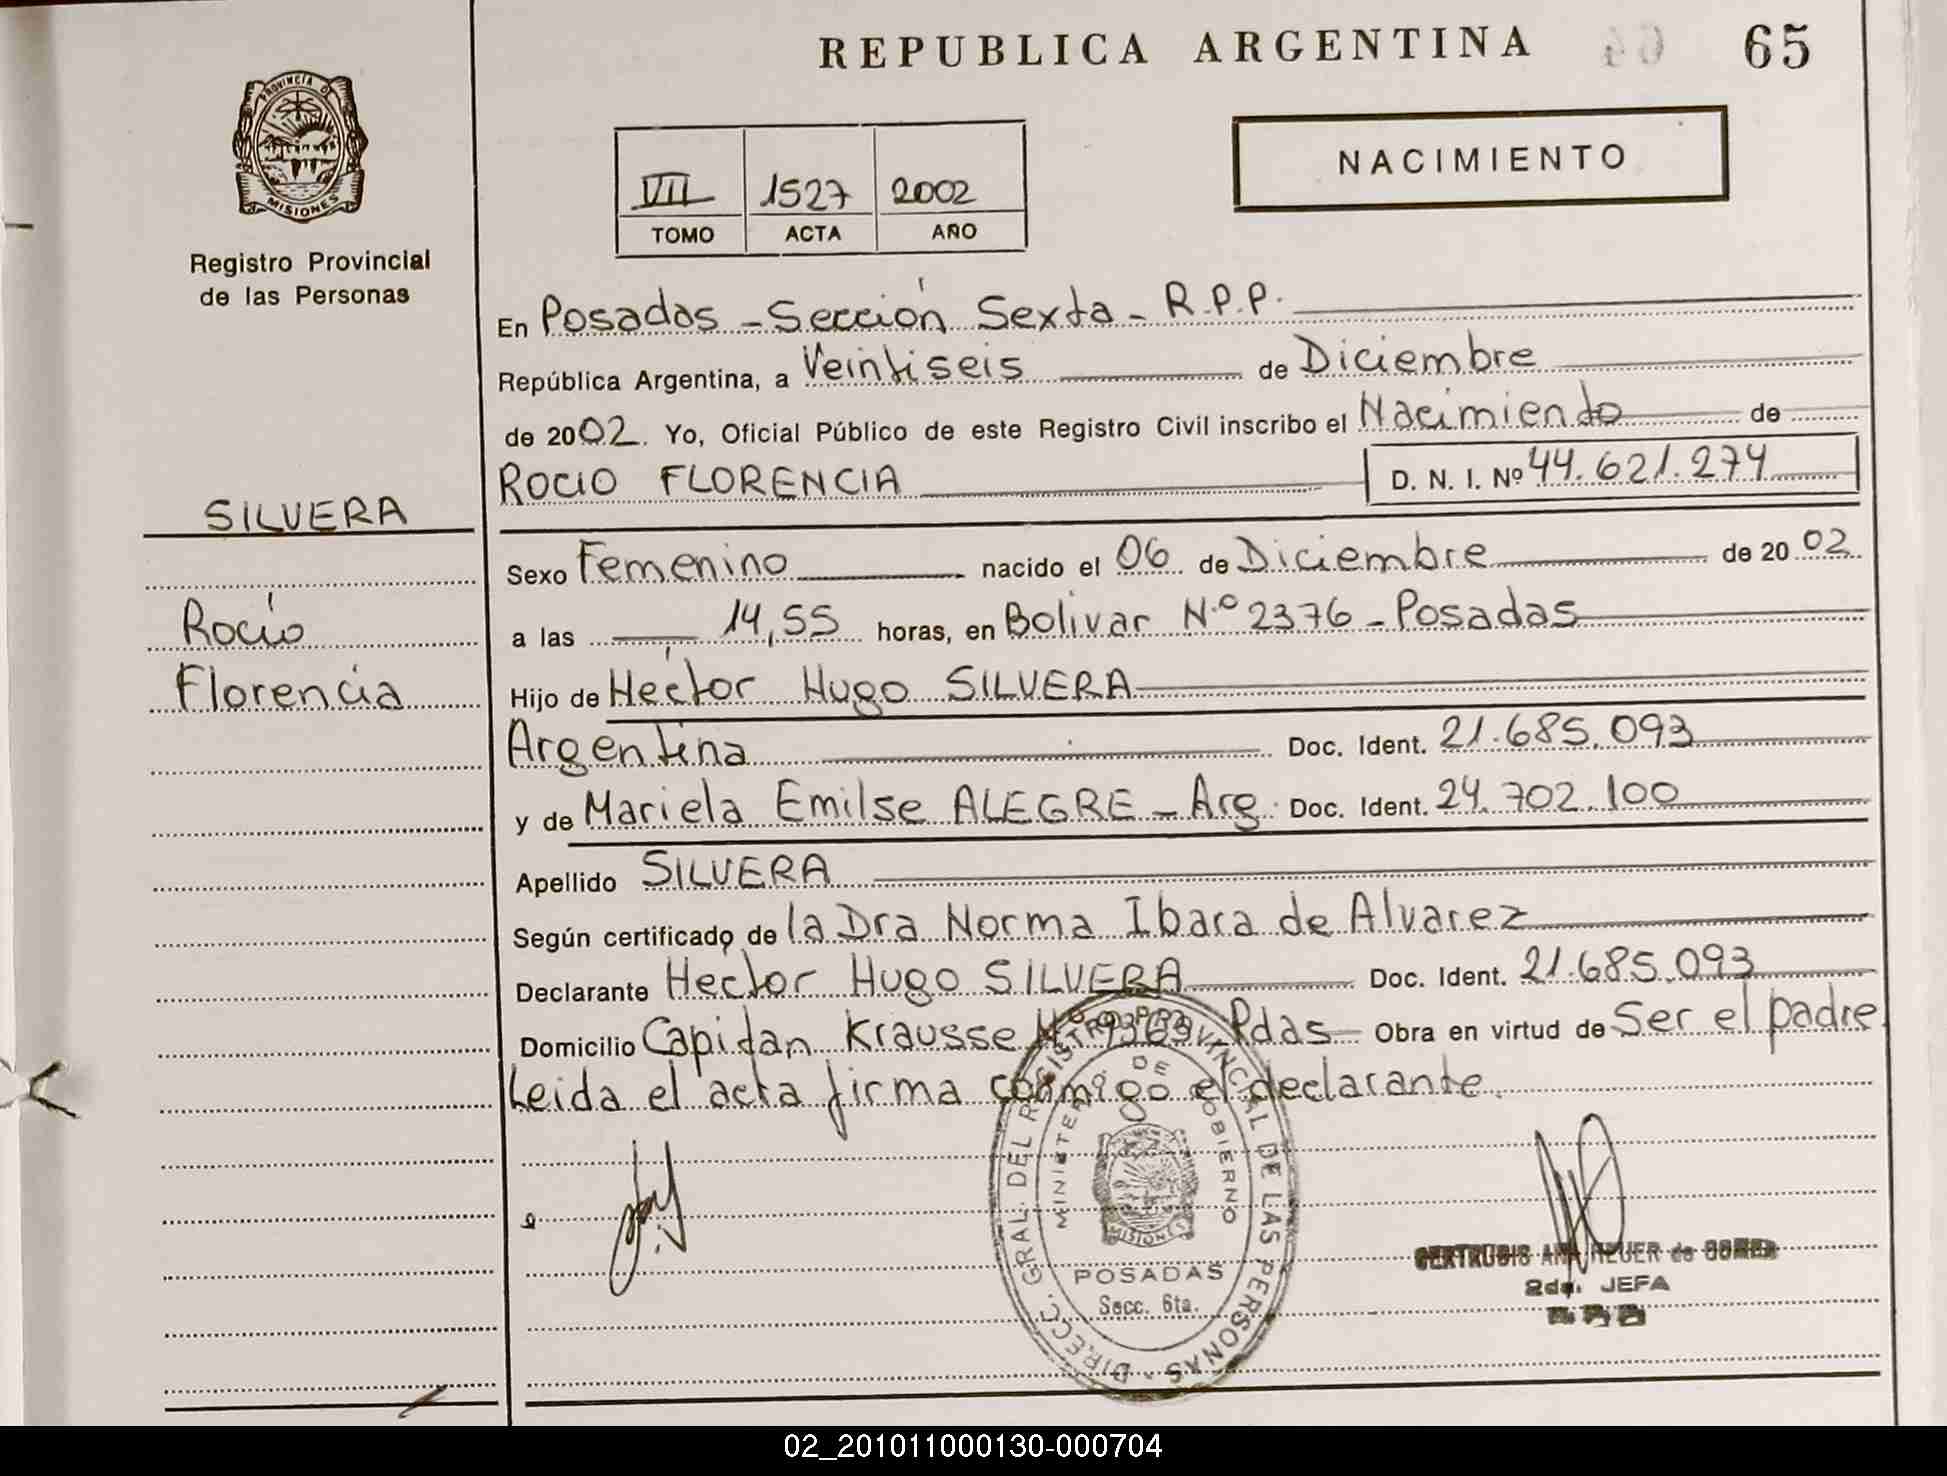 REPUBLICA ARGENTINA 65
PROVINCIA DE
MISIONES
Registro Provincial
de las Personas
NACIMIENTO
VII 1527 2002
TOMO ACTA AÑO
En Posadas - Sección Sexta - R.P.P.
República Argentina, a Veintiseis de Diciembre
de 2002. Yo, Oficial Público de este Registro Civil inscribo el Nacimiento de
ROCIO FLORENCIA D. N. I. Nº 44.621.274
SILVERA
Rocío
Florencia
Sexo Femenino nacido el 06 de Diciembre de 2002
a las 14,55 horas, en Bolivar N.º 2376 - Posadas
Hijo de Héctor Hugo SILVERA
Argentina Doc. Ident. 21.685.093
y de Mariela Emilse ALEGRE - Arg. Doc. Ident. 24.702.100
Apellido SILVERA
Según certificado de la Dra Norma Ibara de Alvarez
Declarante Hector Hugo SILVERA Doc. Ident. 21.685.093
Domicilio Capitan Krausse Nº Pdas Obra en virtud de Ser el padre.
Leida el acta firma conmigo el declarante.
DIRECC. GRAL. DEL REGISTRO PROVINCIAL DE LAS PERSONAS
MINISTERIO DE GOBIERNO
MISIONES
POSADAS
Secc. 6ta.
GERTRUDIS ANA HEUER de
2da. JEFA
02_201011000130-000704